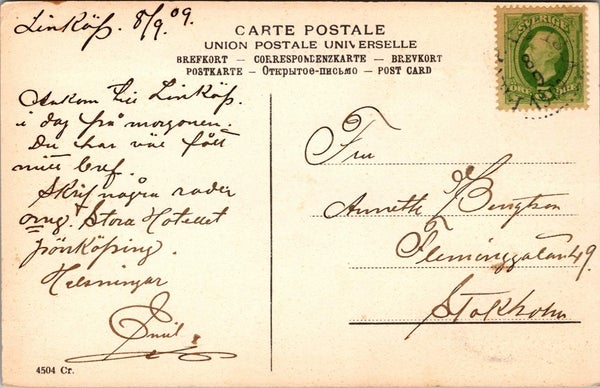 Linköp. 8/9.09.
CARTE POSTALE
UNION POSTALE UNIVERSELLE
BREFKORT — CORRESPONDENZKARTE — BREVKORT
POSTKARTE — Открытое-письмо — POST CARD
SVERIGE
5
ÖRE ÖRE
Ankom till Linköp.
i dag på morgonen.
Du har väl fått
mitt bref.
Skrif några rader
omg. Stora Hotellet
Jönköping.
Helsningar
Emil
Fru
Annette Bengtson
Fleminggatan 49.
Stokholm
4504 Cr.